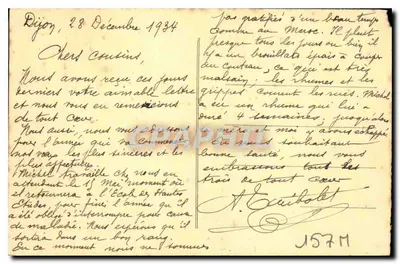 Dijon, 28 Décembre 1934
Chers cousins,
Nous avons reçu ces jours
derniers votre aimable lettre
et nous vous en remercions
de tout cœur.
Nous aussi, nous vous
pour l'année qui va
vœux les plus sincères et les
plus affectueux.
Michel travaille chez nous en
attendant le 15 Mai, moment où il
retournera à l'Ecole des Hautes
Etudes, pour finir l'année qu'il
a été obligé d'interrompre pour cause
de maladie. Nous espérons qu'il
sortira dans un bon rang.
En ce moment nous ne sommes
pas gratifiés d'un beau temps
comme au Maroc. Il pleut
presque tous les jours ou bien il
y a un brouillard épais à couper
au couteau, ça qui est très
malsain, les rhumes et les
grippes courent les rues. Michel
a eu un rhume qui lui
duré 4 semaines, jusqu'alors
mère et moi y avons échappé
En vous souhaitant
bonne santé, nous vous
embrassons tous les
trois de tout cœur
CARTES
157M